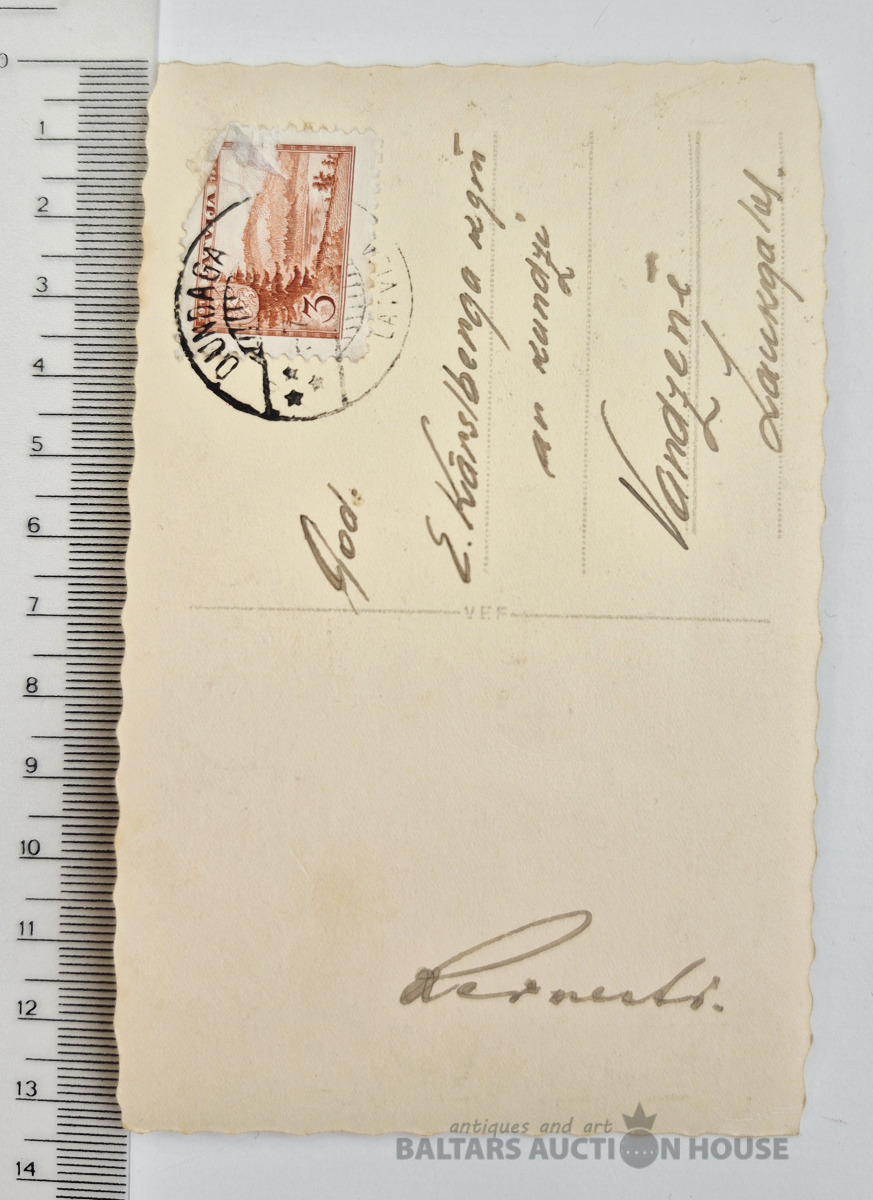 God.
E. Kārslberga kgm
ar kundzi
Vandzenē
Laukgalos.
VEF
LATVIJA
3
DUNDAGA
LATVIJA
0
1
2
3
4
5
6
7
8
9
10
11
12
13
14
antiques and art
BALTARS AUCTION HOUSE